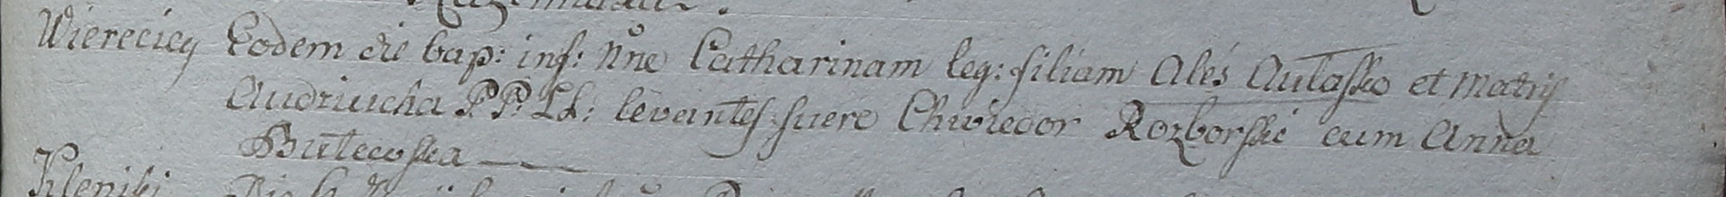 Wierecicy Eodem die bap: inf: Nne Catharinam leg: filiam Ales Aulasko et Matris
Audziucha P.P. LL: levantes fuere Chwiedor Rozborski cum Anna
Butecoska
Kleniki